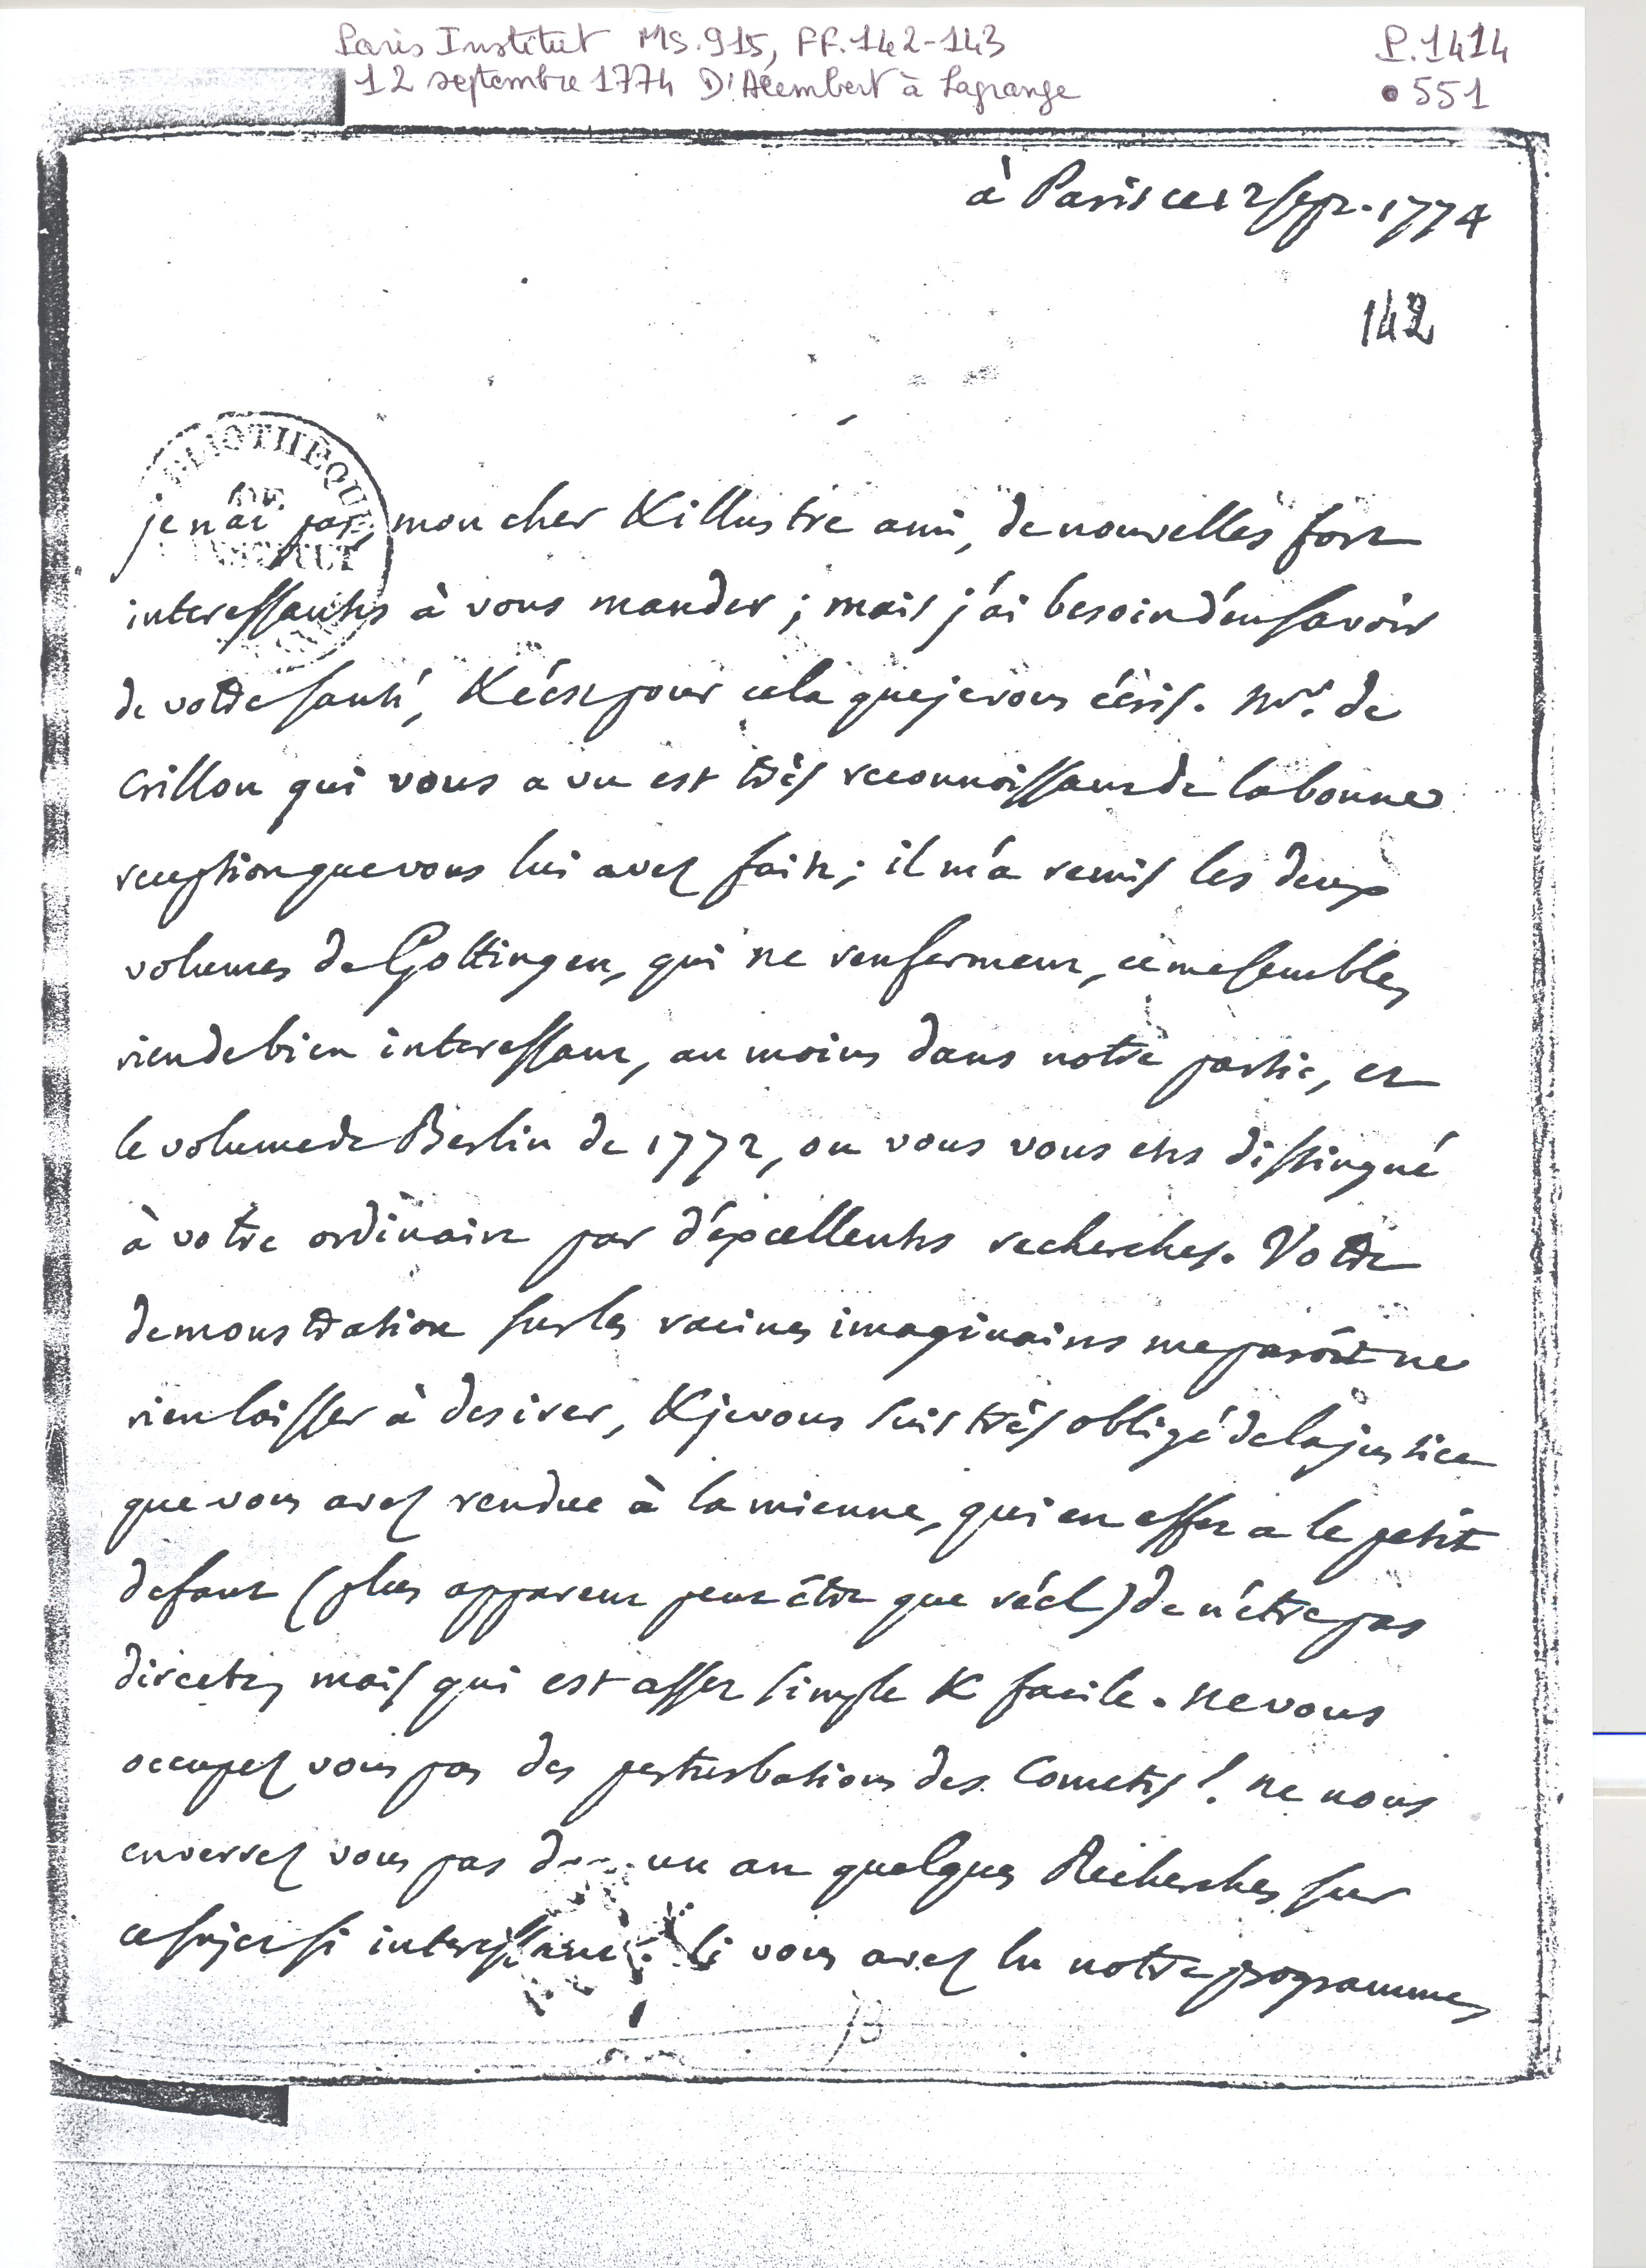 Paris Institut MS.915, FF.142-143
P.1414
12 septembre 1774 D'Alembert à Lagrange
551
à Paris ce 12 sept. 1774
142
BIBLIOTHEQUE
DE
L'INSTITUT
je n'ai pas, mon cher & illustre ami, de nouvelles fort
interessantes à vous mander; mais j'ai besoin d'en savoir
de votre santé, & c'est pour cela que je vous écris. Mr. de
Crillon qui vous a vu est très reconnoissant de la bonne
reception que vous lui avez faite; il m'a remis les deux
volumes de Gottingen, qui ne renferment, ce me semble,
rien de bien interessant, au moins dans notre partie, et
le volume de Berlin de 1772, ou vous vous etes distingué
à votre ordinaire par d'excellentes recherches. Votre
demonstration sur les racines imaginaires me paroit ne
rien laisser à desirer, & je vous suis très obligé de la justice
que vous avez rendue à la mienne, qui en effet a le petit
defaut (plus apparent peut être que réel) de n'être pas
directe, mais qui est assez simple & facile. ne vous
occupez vous pas des perturbations des Cometes! ne nous
enverrez vous pas dans un an quelques Recherches sur
ce sujet si interessant? si vous avez lu notre programme,